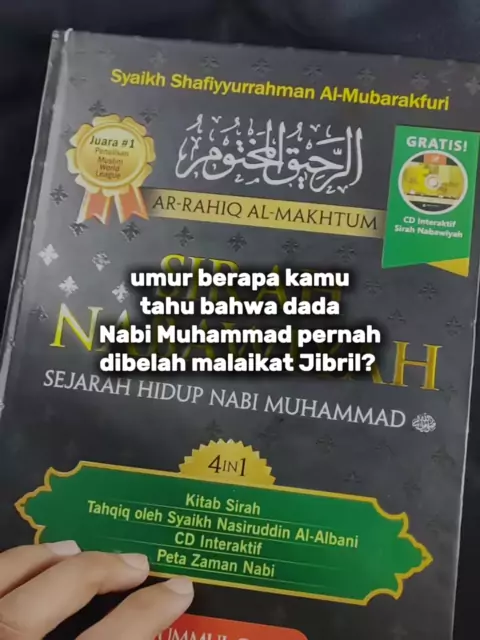 Syaikh Shafiyyurrahman Al-Mubarakfuri
Juara #1
Penulisan
Muslim
World
League
الرحيق المختوم
GRATIS!
CD Interaktif
Sirah Nabawiyah
AR-RAHIQ AL-MAKHTUM
umur berapa kamu
tahu bahwa dada
Nabi Muhammad pernah
dibelah malaikat Jibril?
SEJARAH HIDUP NABI MUHAMMAD ﷺ
4 IN 1
Kitab Sirah
Tahqiq oleh Syaikh Nasiruddin Al-Albani
CD Interaktif
Peta Zaman Nabi